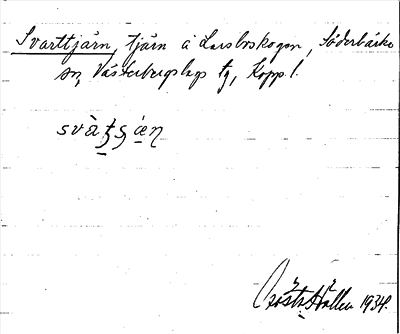 Svarttjärn, tjärn å Larsboskogen, Söderbärke
sn, Västerbergslags tg, Kopp l.
svàtʂæṇ
Gösta Hallen 1934.